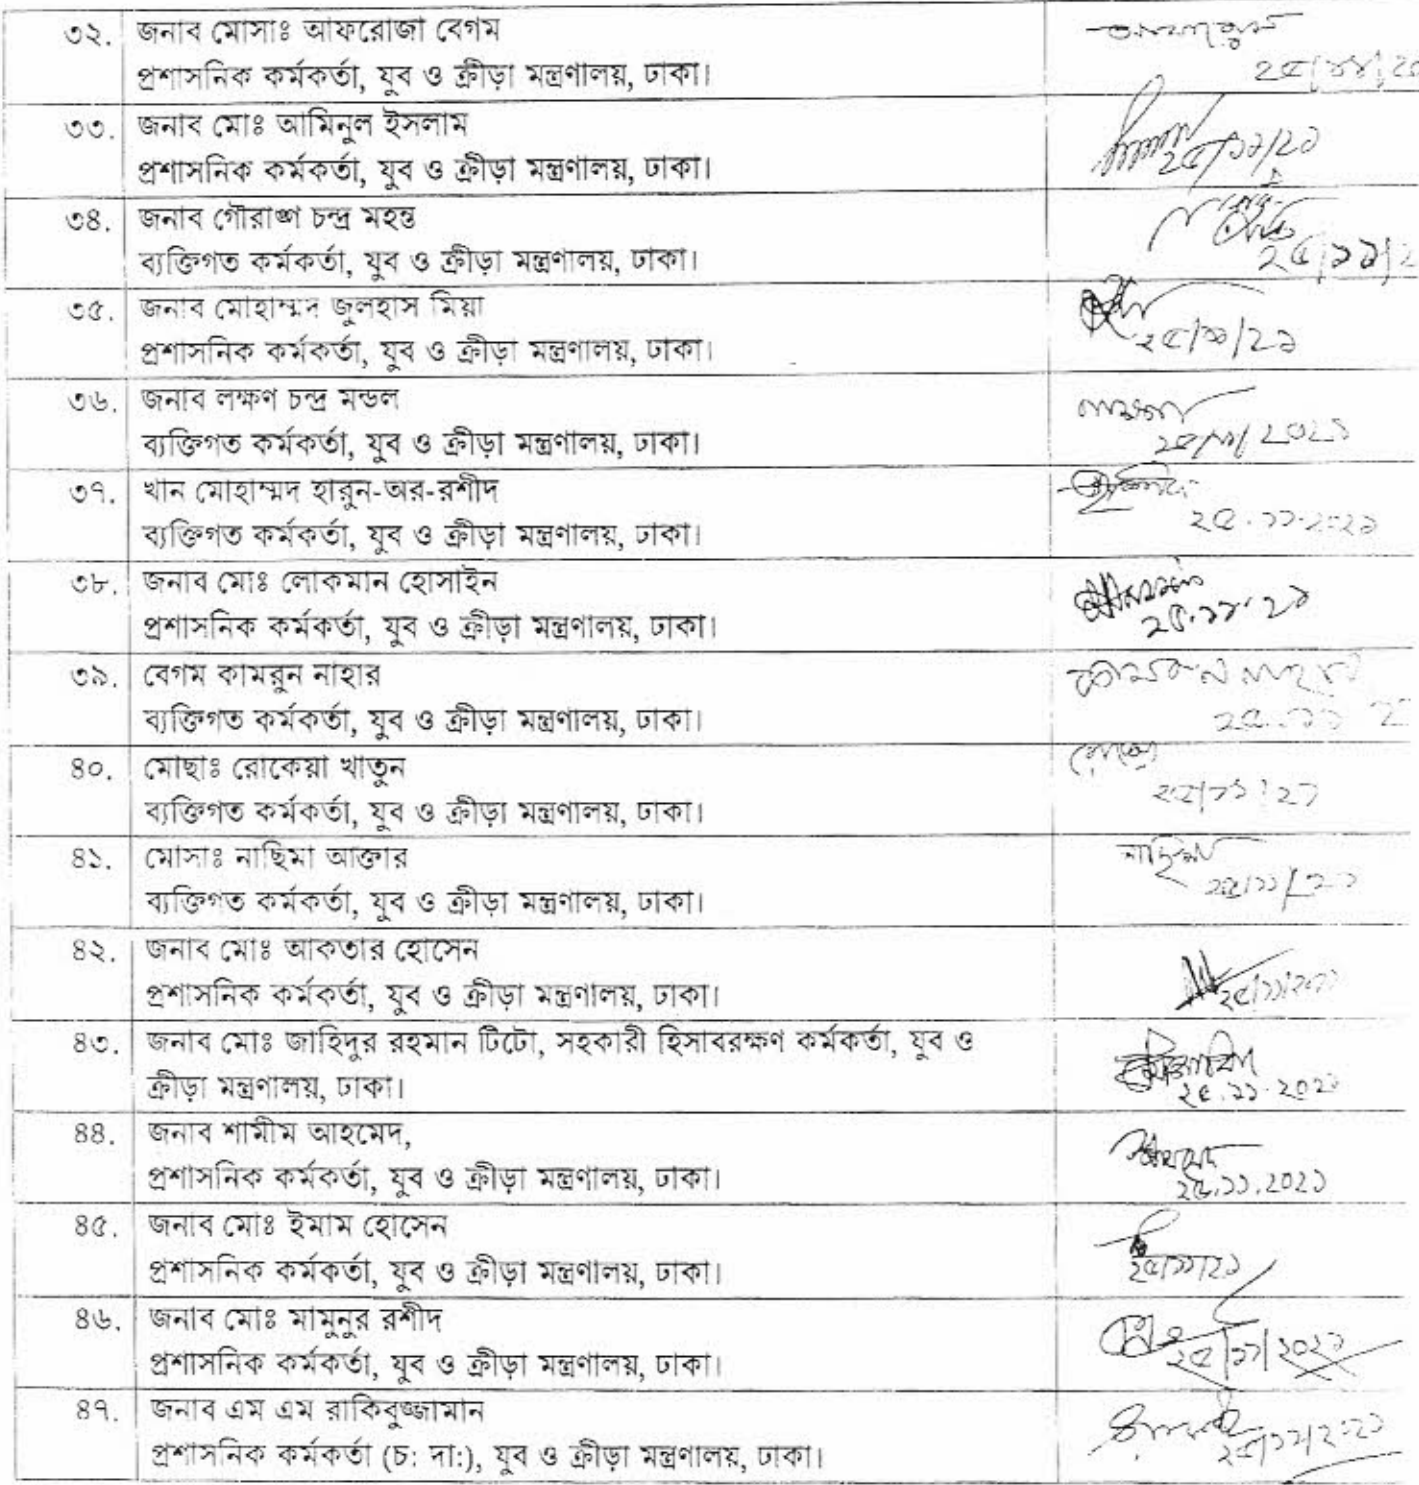 ৩২. জনাব মোসাঃ আফরোজা বেগম
প্রশাসনিক কর্মকর্তা, যুব ও ক্রীড়া মন্ত্রণালয়, ঢাকা।
৩৩. জনাব মোঃ আমিনুল ইসলাম
প্রশাসনিক কর্মকর্তা, যুব ও ক্রীড়া মন্ত্রণালয়, ঢাকা।
২৫/১১/২১
৩৪. জনাব গৌরাঙ্গ চন্দ্র মহন্ত
ব্যক্তিগত কর্মকর্তা, যুব ও ক্রীড়া মন্ত্রণালয়, ঢাকা।
৩৫. জনাব মোহাম্মদ জুলহাস মিয়া
প্রশাসনিক কর্মকর্তা, যুব ও ক্রীড়া মন্ত্রণালয়, ঢাকা।
২৫/১১/২১
৩৬. জনাব লক্ষণ চন্দ্র মন্ডল
ব্যক্তিগত কর্মকর্তা, যুব ও ক্রীড়া মন্ত্রণালয়, ঢাকা।
২৫/১১/২০২১
৩৭. খান মোহাম্মদ হারুন-অর-রশীদ
ব্যক্তিগত কর্মকর্তা, যুব ও ক্রীড়া মন্ত্রণালয়, ঢাকা।
২৫.১১.২০২১
৩৮. জনাব মোঃ লোকমান হোসাইন
প্রশাসনিক কর্মকর্তা, যুব ও ক্রীড়া মন্ত্রণালয়, ঢাকা।
২৫.১১.২১
৩৯. বেগম কামরুন নাহার
কামরুন নাহার
ব্যক্তিগত কর্মকর্তা, যুব ও ক্রীড়া মন্ত্রণালয়, ঢাকা।
৪০. মোছাঃ রোকেয়া খাতুন
ব্যক্তিগত কর্মকর্তা, যুব ও ক্রীড়া মন্ত্রণালয়, ঢাকা।
২৫/১১/২১
৪১. মোসাঃ নাছিমা আক্তার
নাছিমা
ব্যক্তিগত কর্মকর্তা, যুব ও ক্রীড়া মন্ত্রণালয়, ঢাকা।
২৫/১১/২১
৪২. জনাব মোঃ আকতার হোসেন
প্রশাসনিক কর্মকর্তা, যুব ও ক্রীড়া মন্ত্রণালয়, ঢাকা।
২৫/১১/২০২১
৪৩. জনাব মোঃ জাহিদুর রহমান টিটো, সহকারী হিসাবরক্ষণ কর্মকর্তা, যুব ও
ক্রীড়া মন্ত্রণালয়, ঢাকা।
২৫.১১.২০২১
৪৪. জনাব শামীম আহমেদ,
প্রশাসনিক কর্মকর্তা, যুব ও ক্রীড়া মন্ত্রণালয়, ঢাকা।
২৫.১১.২০২১
৪৫. জনাব মোঃ ইমাম হোসেন
প্রশাসনিক কর্মকর্তা, যুব ও ক্রীড়া মন্ত্রণালয়, ঢাকা।
২৫/১১/২১
৪৬. জনাব মোঃ মামুনুর রশীদ
প্রশাসনিক কর্মকর্তা, যুব ও ক্রীড়া মন্ত্রণালয়, ঢাকা।
২৫/১১/২০২১
৪৭. জনাব এম এম রাকিবুজ্জামান
প্রশাসনিক কর্মকর্তা (চ: দা:), যুব ও ক্রীড়া মন্ত্রণালয়, ঢাকা।
২৫/১১/২০২১